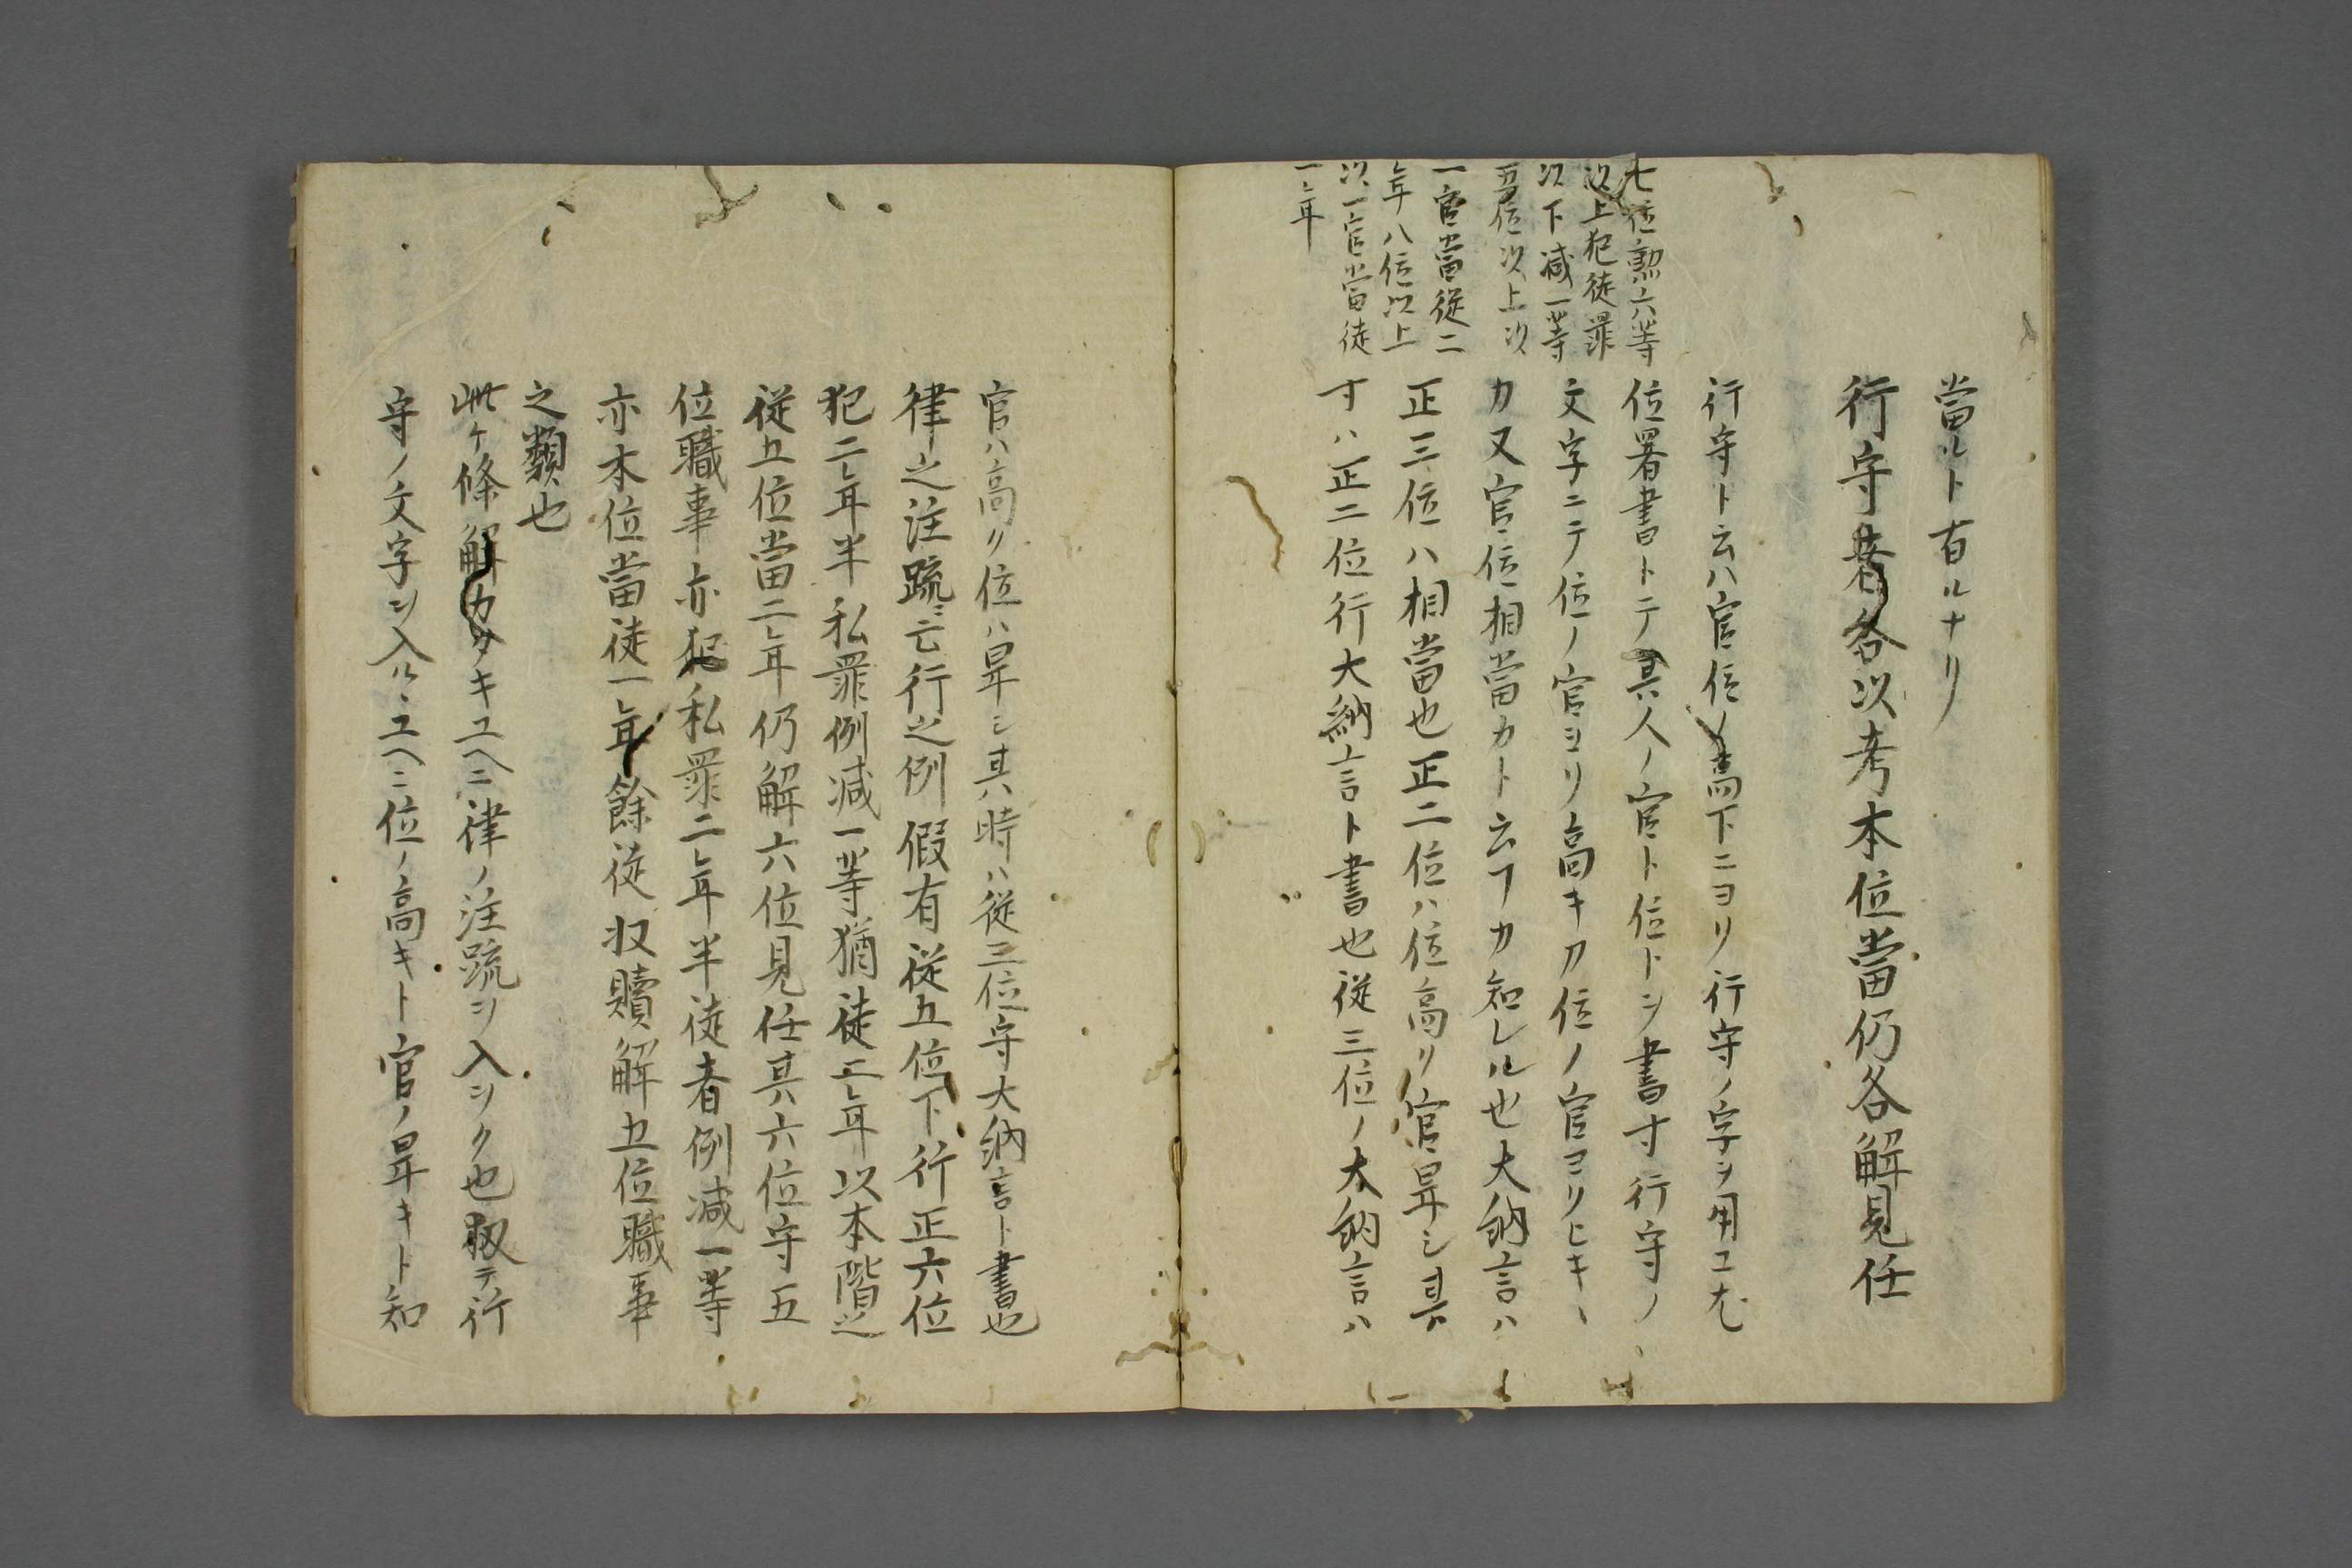 當ルト有ルナリ
行守者各以考本位當仍各解見任
行守ト云ハ官位ノ高下ニヨリ行守ノ字ヲ用ユ尤
位署書トテ其人ノ官ト位トヲ書寸行守ノ
文字ニテ位ノ官ヨリ高キカ位ノ官ヨリヒキヽ
カ又官位相當カト云フカ知レル也大納言ハ
正三位ハ相當也正二位ハ位高リ官昇シ其
寸ハ正二位行大納言ト書也従三位ノ大納言ハ
七位勲六等
以上犯徒罪
以下減一等
五位以上以
一官當従二
年八位以上
以一官當徒
一年
官ハ高リ位ハ昇シ其時ハ従三位守大納言ト書也
律之注疏ニ云行之例假有従五位下行正六位
犯二年半私罪例減一等猶徒二年以本階
従五位當二年仍解六位見任其六位守五
位職事亦犯私罪二年半徒者例減一等
亦本位當徒一年餘従収贖解五位職事
之類也
此ケ條解カタキユヘニ律ノ注疏ヲ入ヲク也扨テ行
守ノ文字ヲ入ルヽユヘニ位ノ高キト官ノ昇キト知